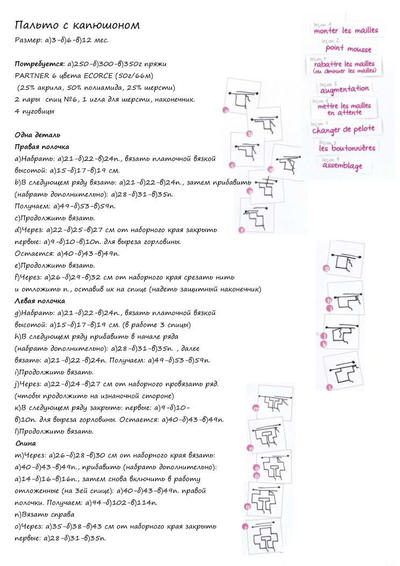 Пальто с капюшоном
Размер: а)3-б)6-в)12 мес.
Потребуется: а)250-б)300-в)350г пряжи
PARTNER 6 цвета ECORCE (50г/66м)
(25% акрила, 50% полиамида, 25% шерсти)
2 пары спиц №6, 1 игла для шерсти, наконечник.
4 пуговицы
Одна деталь
Правая полочка
a)Набрать: а)21-б)22-в)24п., вязать платочной вязкой
высотой: а)15-б)17-в)19 см.
b)В следующем ряду вязать: а)21-б)22-в)24п., затем прибавить
(набрать дополнительно): а)28-б)31-в)35п.
Получаем: а)49-б)53-в)59п.
c)Продолжить вязать.
d)Через: а)22-б)25-в)27 см от наборного края закрыть
первые: а)9-б)10-в)10п. для выреза горловины.
Остается: а)40-б)43-в)49п.
e)Продолжить вязать.
f)Через: а)26-б)29-в)32 см от наборного края срезать нить
и отложить п., оставив их на спице (надеть защитный наконечник)
Левая полочка
g)Набрать: а)21-б)22-в)24п., вязать платочной вязкой
высотой: а)15-б)17-в)19 см. (в работе 3 спицы)
h)В следующем ряду прибавить в начале ряда
(набрать дополнительно): а)28-б)31-в)35п. , далее
вязать: а)21-б)22-в)24п. Получаем: а)49-б)53-в)59п.
i)Продолжить вязать.
j)Через: а)22-б)24-в)27 см от наборного провязать ряд.
(чтобы продолжить на изнаночной стороне)
к)В следующем ряду закрыть: первые: а)9-б)10-
в)10п. для выреза горловины. Остается: а)40-б)43-в)49п.
l)Продолжить вязать.
Спина
m)Через: а)26-б)28-в)30 см от наборного края вязать:
а)40-б)43-в)49п., прибавить (набрать дополнительно):
а)14-б)16-в)16п., затем снова включить в работу
отложенные (на 3ей спице): а)40-б)43-в)49п. правой
полочки. Получаем: а)94-б)102-в)114п.
n)Вязать справа
o)Через: а)35-б)38-в)43 см от наборного края закрыть
первые: а)28-б)31-в)35п.
monter les mailles
point mousse
rabattre les mailles
(ou diminuer les mailles)
augmentation
mettre les mailles
en attente
changer de pelote
les boutonnières
assemblage